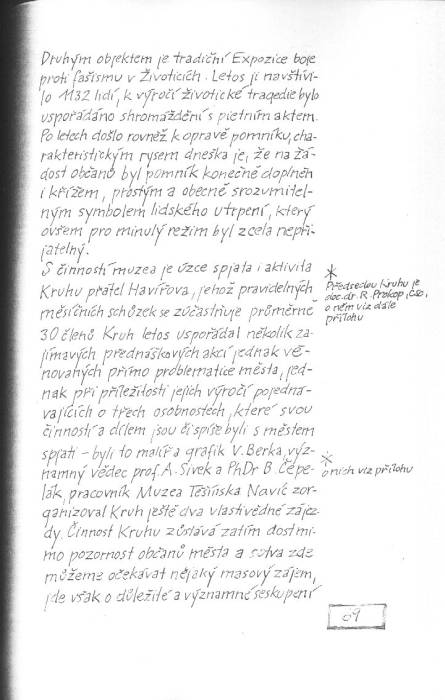 Druhým objektem je tradiční Expozice boje
proti fašismu v Životicích. Letos ji navštívi-
lo 1132 lidí, k výročí životické tragedie bylo
uspořádáno shromáždění s pietním aktem.
Po letech došlo rovněž k opravě pomníku, cha-
rakteristickým rysem dneška je, že na žá-
dost občanů byl pomník konečně doplněn
i křížem, prostým a obecně srozumitel-
ným symbolem lidského utrpení, který
ovšem pro minulý režim byl zcela nepři-
jatelný.
S činností muzea je úzce spjata i aktivita
Kruhu přátel Havířova, jehož pravidelných
měsíčních schůzek se zúčastňuje průměrně
30 členů. Kruh letos uspořádal několik za-
jímavých přednáškových akcí jednak vě-
novaných přímo problematice města, jed-
nak při příležitosti jejich výročí pojedná-
vajících o třech osobnostech, které svou
činností a dílem jsou či spíše byli s městem
spjati - byli to malíř a grafik V. Berka, výz-
namný vědec prof. A. Sivek a PhDr B. Čepe-
lák, pracovník Muzea Těšínska. Navíc zor-
ganizoval Kruh ještě dva vlastivědné zájez-
dy. Činnost Kruhu zůstává zatím dost mi-
mo pozornost občanů města a sotva zde
můžeme očekávat nějaký masový zájem,
jde však o důležité a významné seskupení
*
Předsedou Kruhu je
doc. dr. R. Prokop, CSc.,
o něm viz dále
přílohu
*
o nich viz přílohu
09